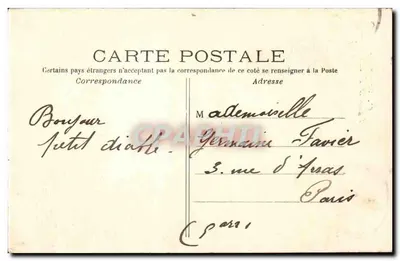 CARTE POSTALE
Certains pays étrangers n'acceptant pas la correspondance de ce coté se renseigner à la Poste
Correspondance
Adresse
Bonjour
petit diable.
Mademoiselle
Germaine Favier
3. rue d'Arras
Paris